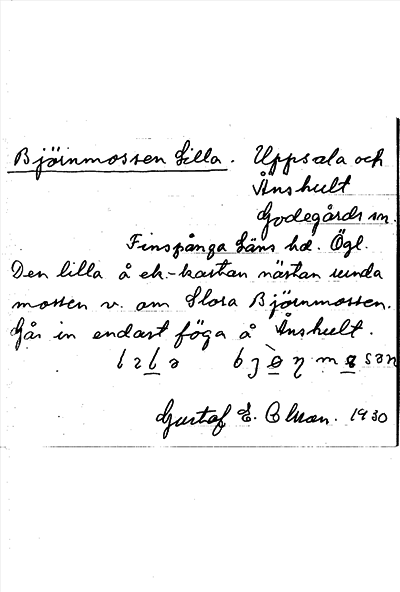 Björnmossen Lilla. Uppsala och
Ånshult
Godegårds sn.
Finspånga läns hd. Ögl.
Den lilla å ek.-kartan nästan runda
mossen v. om Stora Björnmossen.
Går in endast föga å Ånshult.
Gustaf E. Olsson. 1930